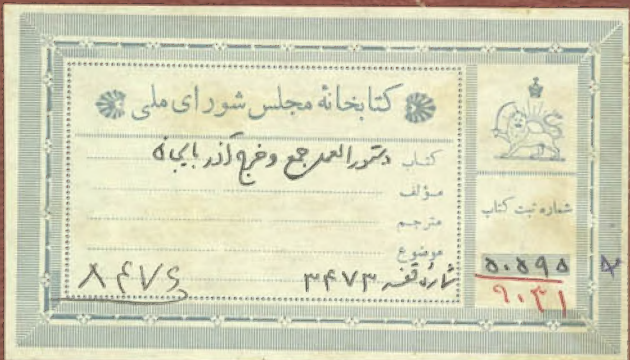 کتابخانه مجلس شورای ملی
کتاب دستورالعمل جمع و خرج آذربایجان
مؤلف
مترجم
موضوع
شماره قفسه ۳۴۷۳
۸۴۷۶
شماره ثبت کتاب
۵۰۵۹۵
۹۰۳۱